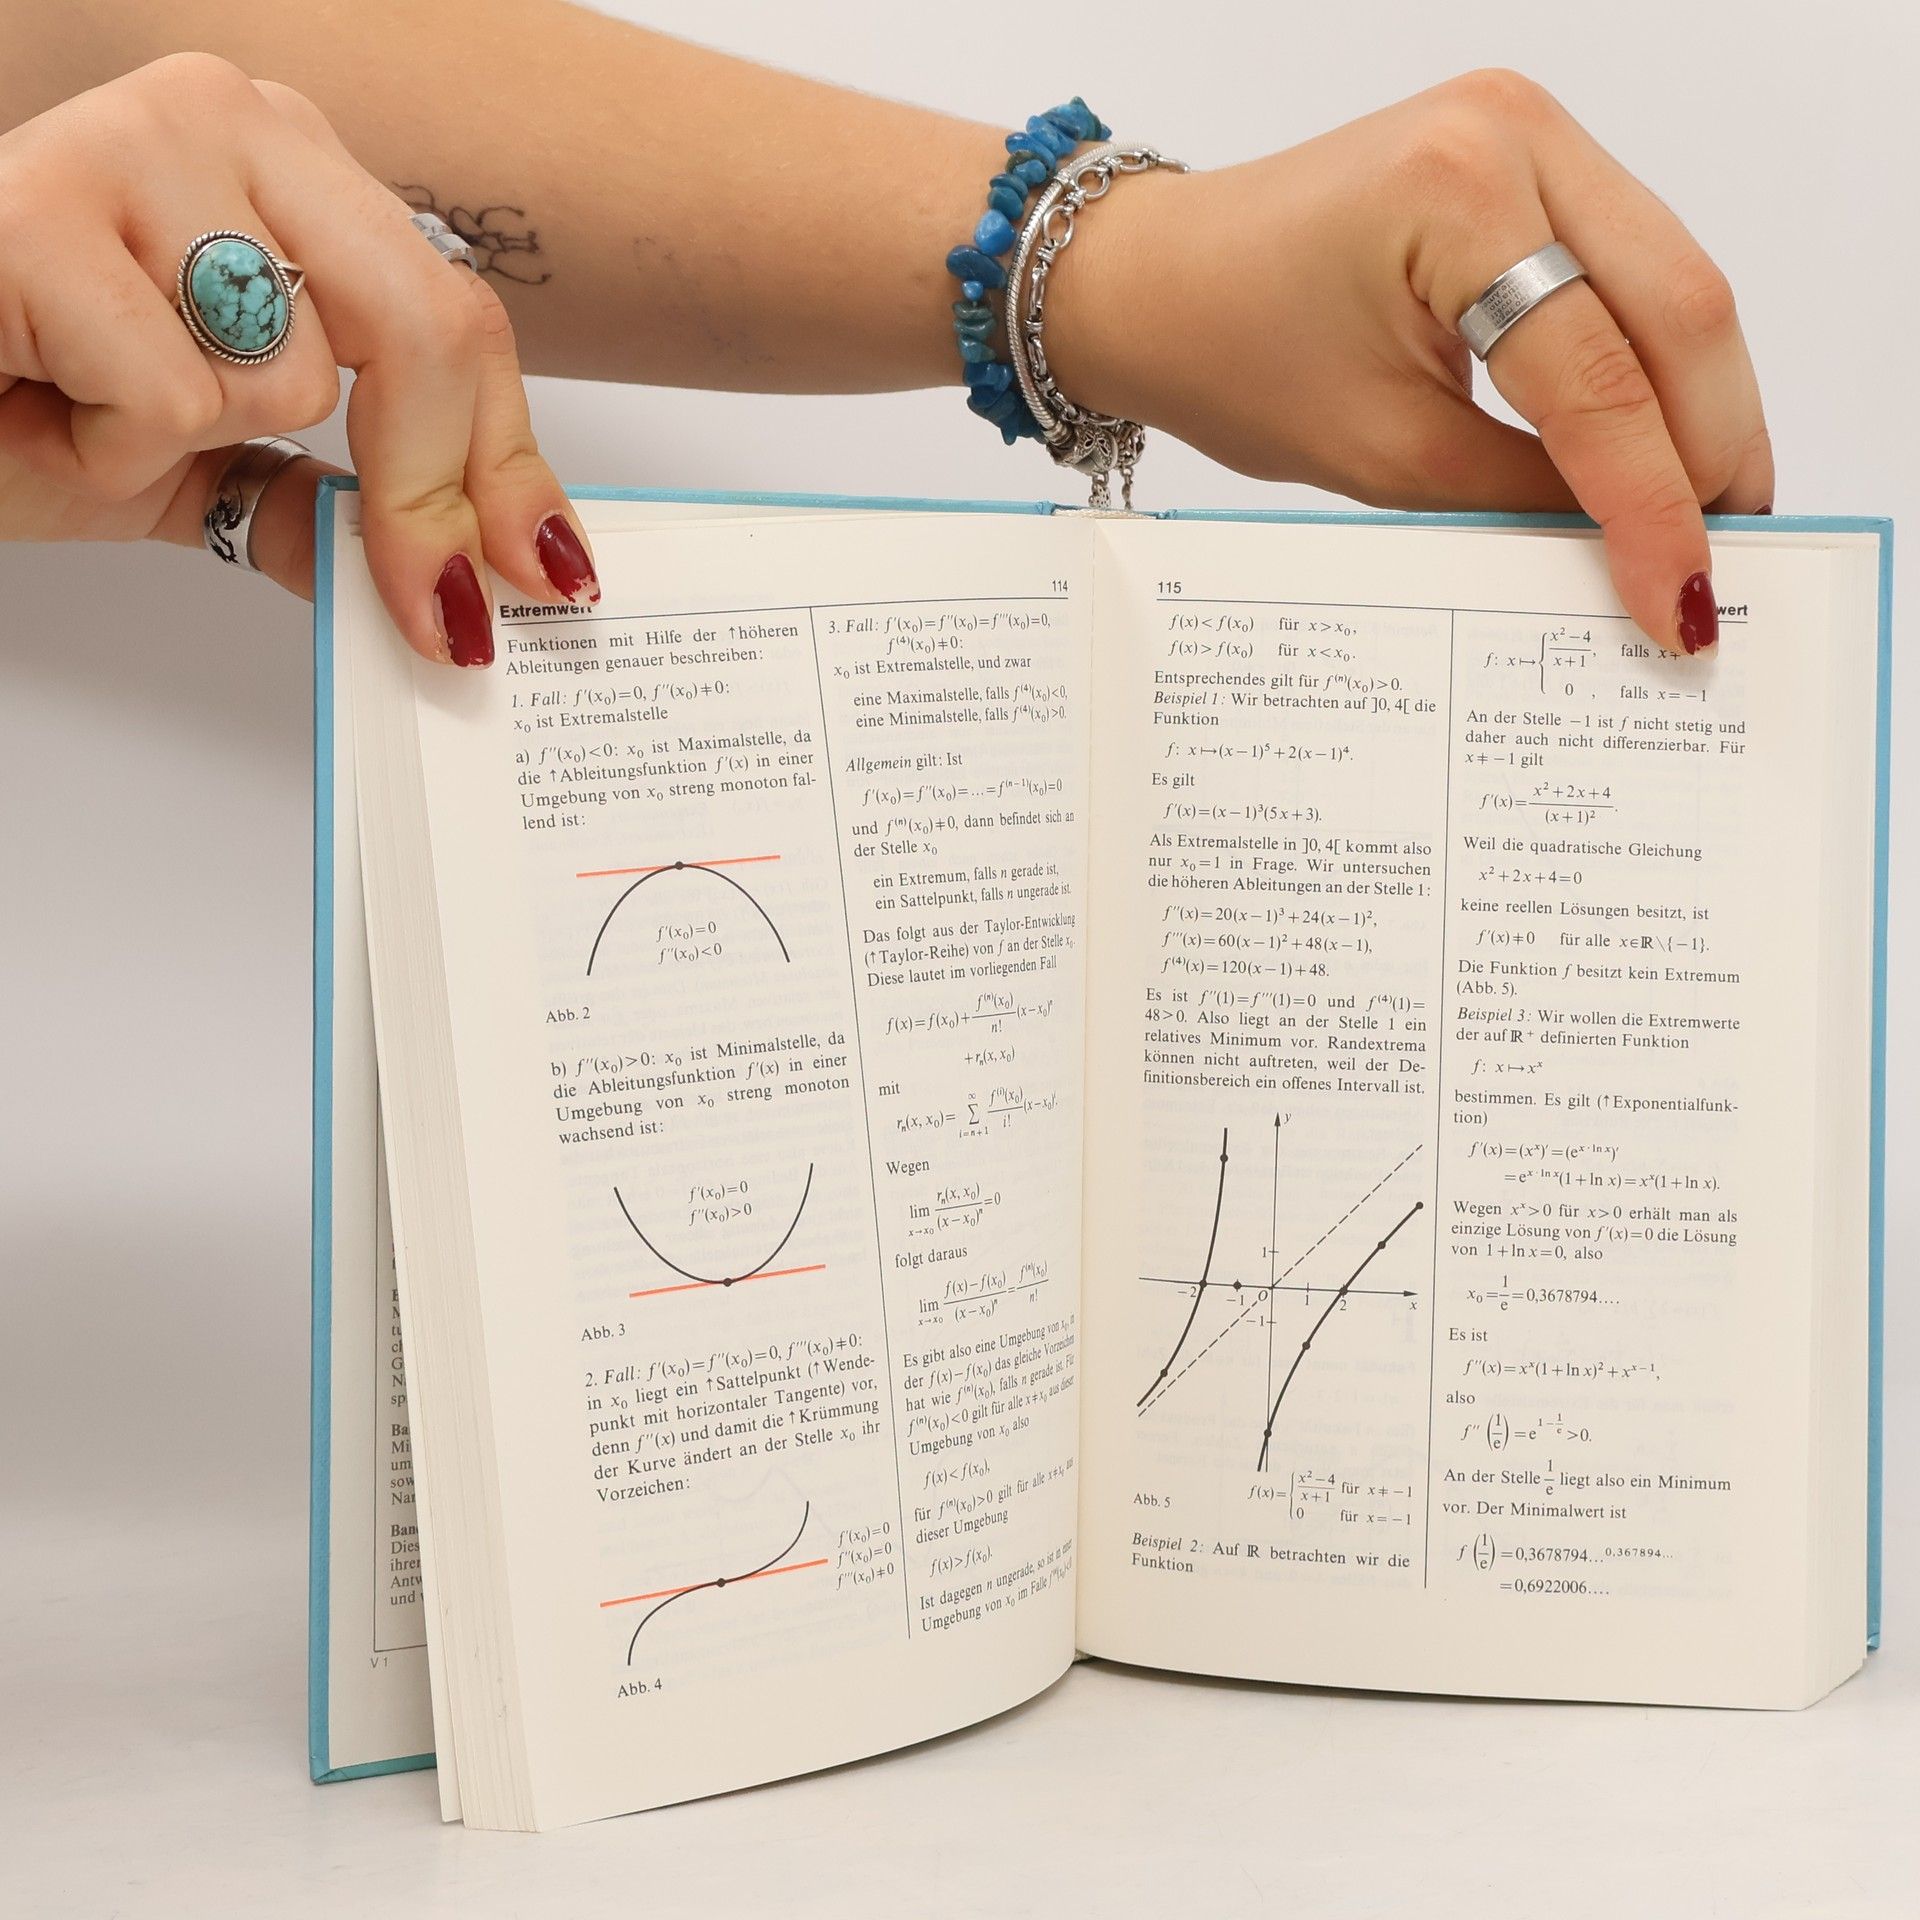 Extremwert
114
Funktionen mit Hilfe der ↑höheren
Ableitungen genauer beschreiben:
1. Fall: f′(x₀)=0, f″(x₀)≠0:
x₀ ist Extremalstelle
a) f″(x₀)<0: x₀ ist Maximalstelle, da
die ↑Ableitungsfunktion f′(x) in einer
Umgebung von x₀ streng monoton fal-
lend ist:
f′(x₀)=0
f″(x₀)<0
Abb. 2
b) f″(x₀)>0: x₀ ist Minimalstelle, da
die Ableitungsfunktion f′(x) in einer
Umgebung von x₀ streng monoton
wachsend ist:
f′(x₀)=0
f″(x₀)>0
Abb. 3
2. Fall: f′(x₀)=f″(x₀)=0, f‴(x₀)≠0:
in x₀ liegt ein ↑Sattelpunkt (↑Wende-
punkt mit horizontaler Tangente) vor,
denn f″(x) und damit die ↑Krümmung
der Kurve ändert an der Stelle x₀ ihr
Vorzeichen:
f′(x₀)=0
f″(x₀)=0
f‴(x₀)≠0
Abb. 4
3. Fall: f′(x₀)=f″(x₀)=f‴(x₀)=0,
f⁽⁴⁾(x₀)≠0:
x₀ ist Extremalstelle, und zwar
eine Maximalstelle, falls f⁽⁴⁾(x₀)<0,
eine Minimalstelle, falls f⁽⁴⁾(x₀)>0.
Allgemein gilt: Ist
f′(x₀)=f″(x₀)=...=f⁽ⁿ⁻¹⁾(x₀)=0
und f⁽ⁿ⁾(x₀)≠0, dann befindet sich an
der Stelle x₀
ein Extremum, falls n gerade ist,
ein Sattelpunkt, falls n ungerade ist.
Das folgt aus der Taylor-Entwicklung
(↑Taylor-Reihe) von f an der Stelle x₀.
Diese lautet im vorliegenden Fall
f(x)=f(x₀)+f⁽ⁿ⁾(x₀)/n! (x−x₀)ⁿ
+rₙ(x, x₀)
mit
rₙ(x, x₀)= ∑ i=n+1 ∞ f⁽ⁱ⁾(x₀)/i! (x−x₀)ⁱ.
Wegen
lim x→x₀ rₙ(x, x₀)/(x−x₀)ⁿ=0
folgt daraus
lim x→x₀ f(x)−f(x₀)/(x−x₀)ⁿ=f⁽ⁿ⁾(x₀)/n!
Es gibt also eine Umgebung von x₀, in
der f(x)−f(x₀) das gleiche Vorzeichen
hat wie f⁽ⁿ⁾(x₀), falls n gerade ist. Für
f⁽ⁿ⁾(x₀)<0 gilt für alle x≠x₀ aus dieser
Umgebung von x₀ also
f(x)<f(x₀),
für f⁽ⁿ⁾(x₀)>0 gilt für alle x≠x₀ aus
dieser Umgebung
f(x)>f(x₀).
Ist dagegen n ungerade, so ist in einer
Umgebung von x₀ im Falle f⁽ⁿ⁾(x₀)<0
115
wert
f(x)<f(x₀) für x>x₀,
f(x)>f(x₀) für x<x₀.
Entsprechendes gilt für f⁽ⁿ⁾(x₀)>0.
Beispiel 1: Wir betrachten auf ]0, 4[ die
Funktion
f: x↦(x−1)⁵+2(x−1)⁴.
Es gilt
f′(x)=(x−1)³(5x+3).
Als Extremalstelle in ]0, 4[ kommt also
nur x₀=1 in Frage. Wir untersuchen
die höheren Ableitungen an der Stelle 1:
f″(x)=20(x−1)³+24(x−1)²,
f‴(x)=60(x−1)²+48(x−1),
f⁽⁴⁾(x)=120(x−1)+48.
Es ist f″(1)=f‴(1)=0 und f⁽⁴⁾(1)=
48>0. Also liegt an der Stelle 1 ein
relatives Minimum vor. Randextrema
können nicht auftreten, weil der De-
finitionsbereich ein offenes Intervall ist.
y
1
−2 −1 O 1 2 x
−1
Abb. 5
f(x)={ x²−4/x+1 für x≠−1
0 für x=−1
Beispiel 2: Auf ℝ betrachten wir die
Funktion
f: x↦{ x²−4/x+1, falls x≠
0 , falls x=−1
An der Stelle −1 ist f nicht stetig und
daher auch nicht differenzierbar. Für
x≠−1 gilt
f′(x)=x²+2x+4/(x+1)².
Weil die quadratische Gleichung
x²+2x+4=0
keine reellen Lösungen besitzt, ist
f′(x)≠0 für alle x∈ℝ\{−1}.
Die Funktion f besitzt kein Extremum
(Abb. 5).
Beispiel 3: Wir wollen die Extremwerte
der auf ℝ⁺ definierten Funktion
f: x↦xˣ
bestimmen. Es gilt (↑Exponentialfunk-
tion)
f′(x)=(xˣ)′=(e^(x·ln x))′
=e^(x·ln x)(1+ln x)=xˣ(1+ln x).
Wegen xˣ>0 für x>0 erhält man als
einzige Lösung von f′(x)=0 die Lösung
von 1+ln x=0, also
x₀=1/e=0,3678794....
Es ist
f″(x)=xˣ(1+ln x)²+xˣ⁻¹,
also
f″(1/e)=e^(1−1/e)>0.
An der Stelle 1/e liegt also ein Minimum
vor. Der Minimalwert ist
f(1/e)=0,3678794...^0,367894...
=0,6922006....
V 1